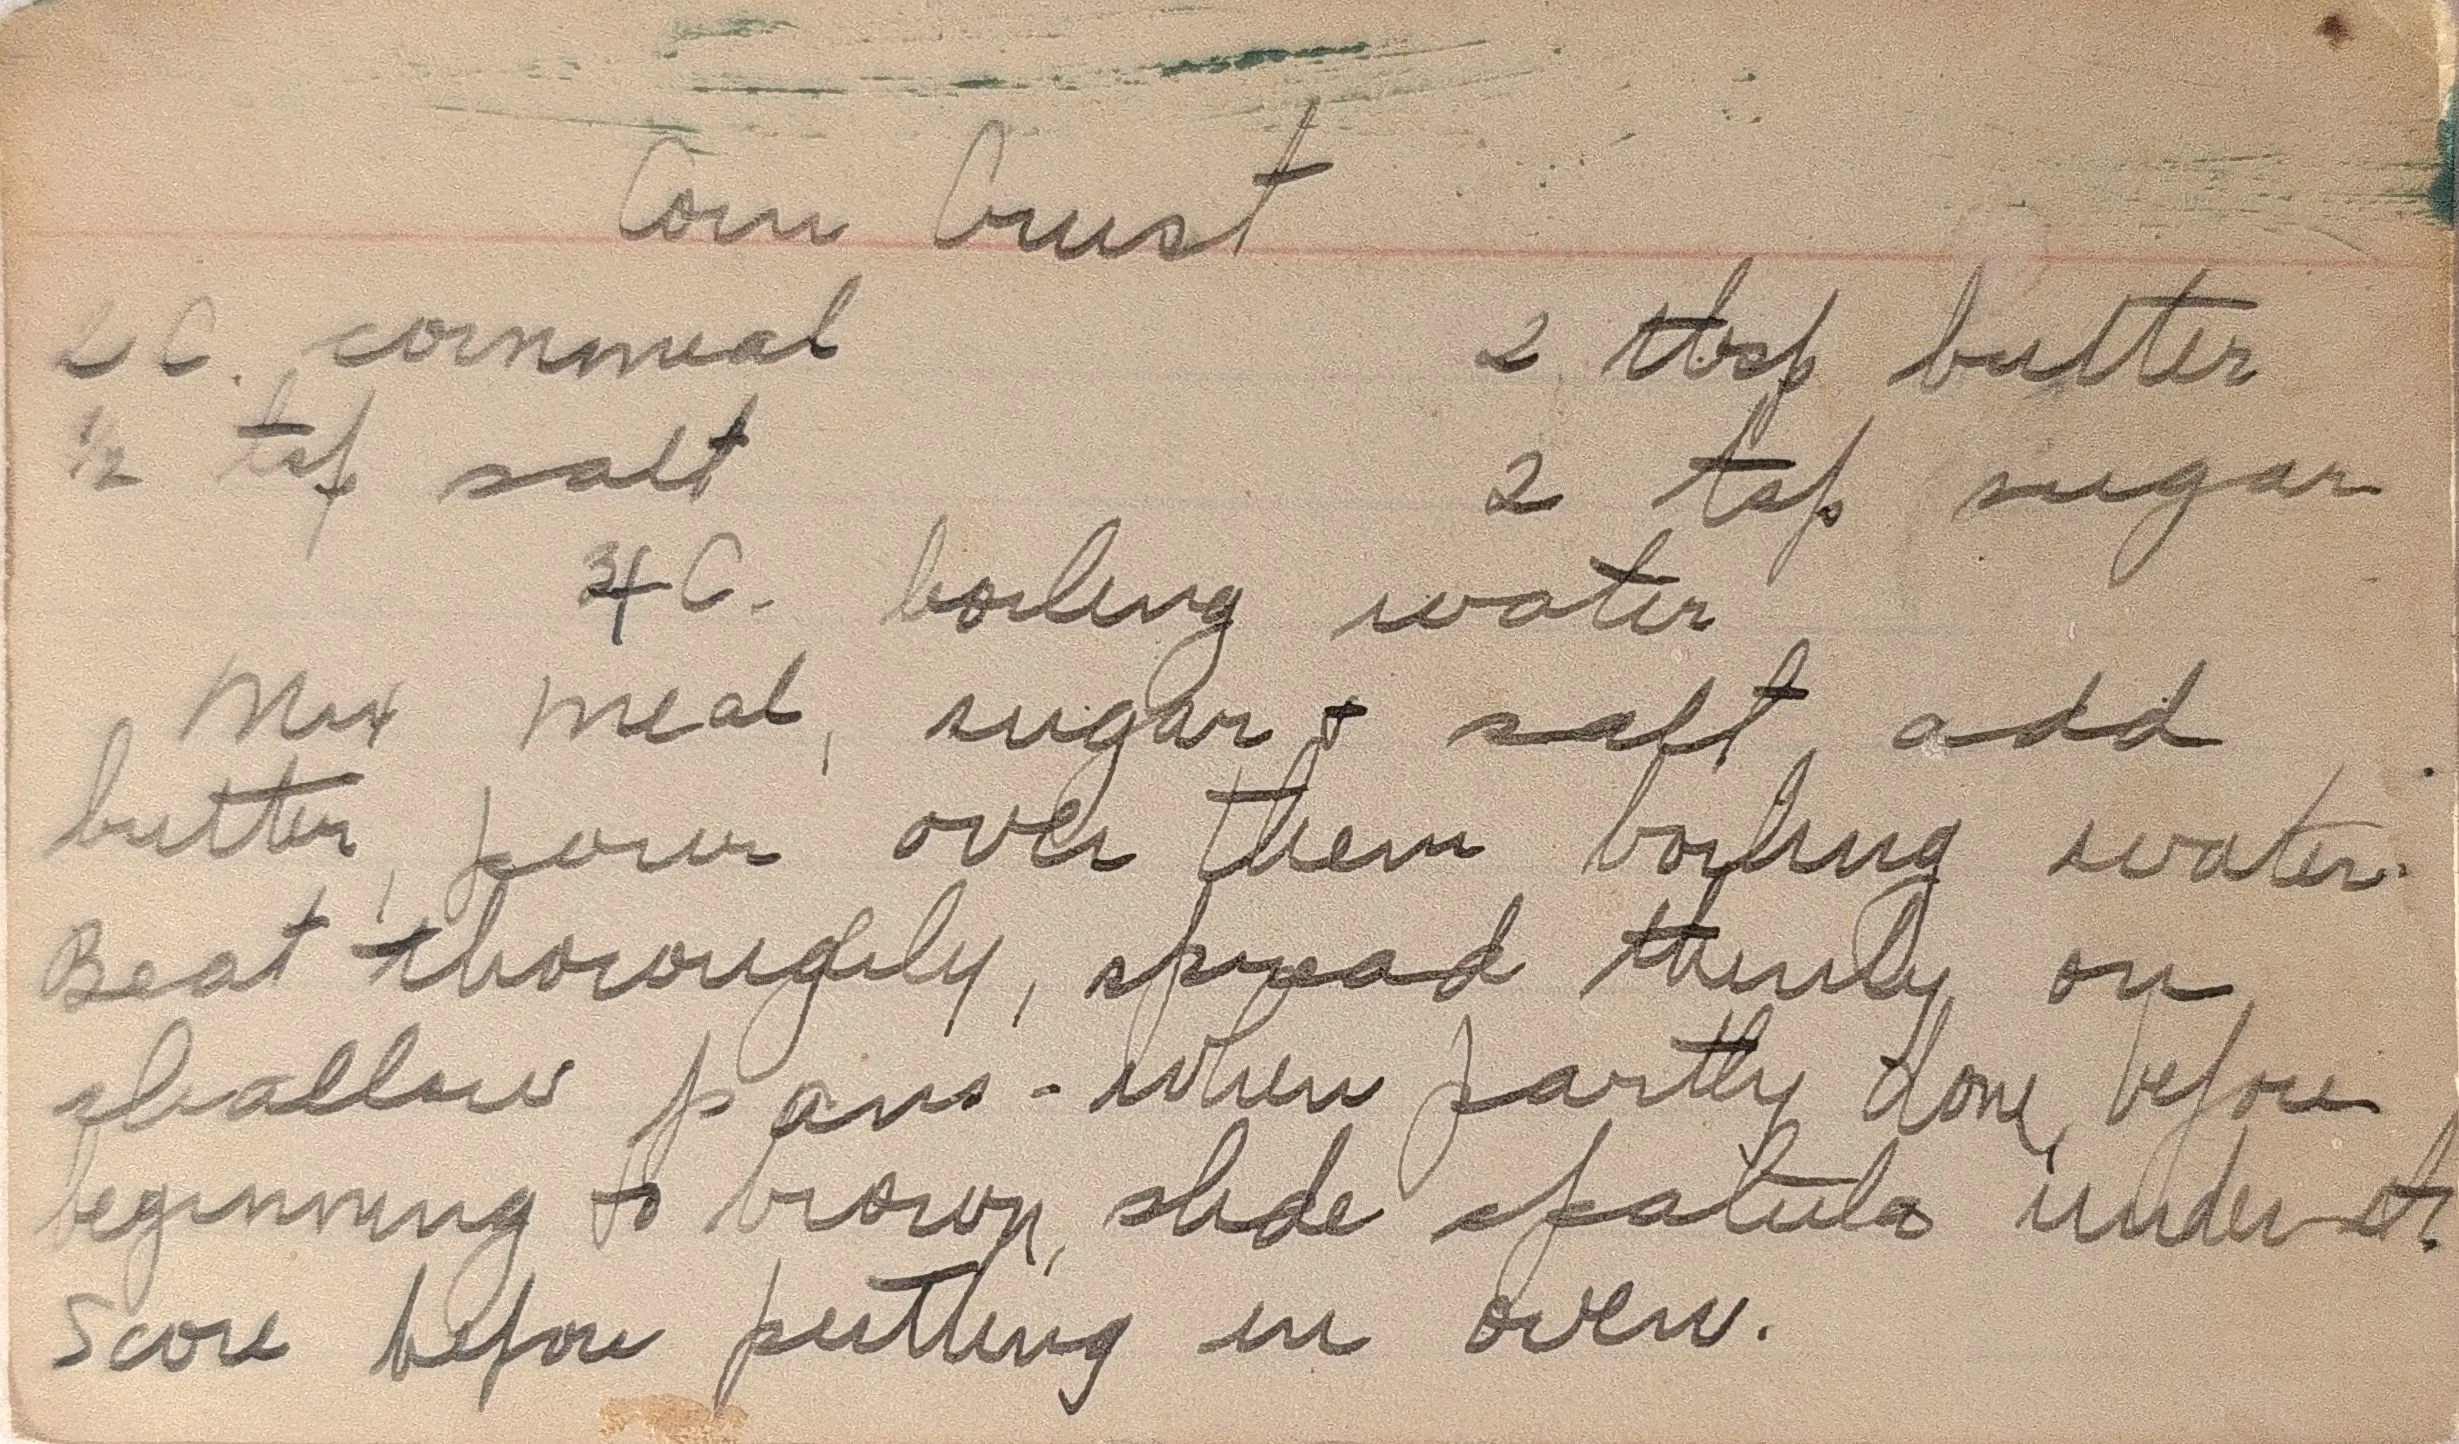 Corn Crust
2 C. cornmeal 2 tbsp butter
1/2 tsp salt 2 tsp sugar
3/4 C. boiling water
Mix meal, sugar & salt, add
butter, pour over them boiling water.
Beat thoroughly, spread thinly on
shallow pans - when partly done, before
beginning to brown, slide spatula under it.
Score before putting in oven.